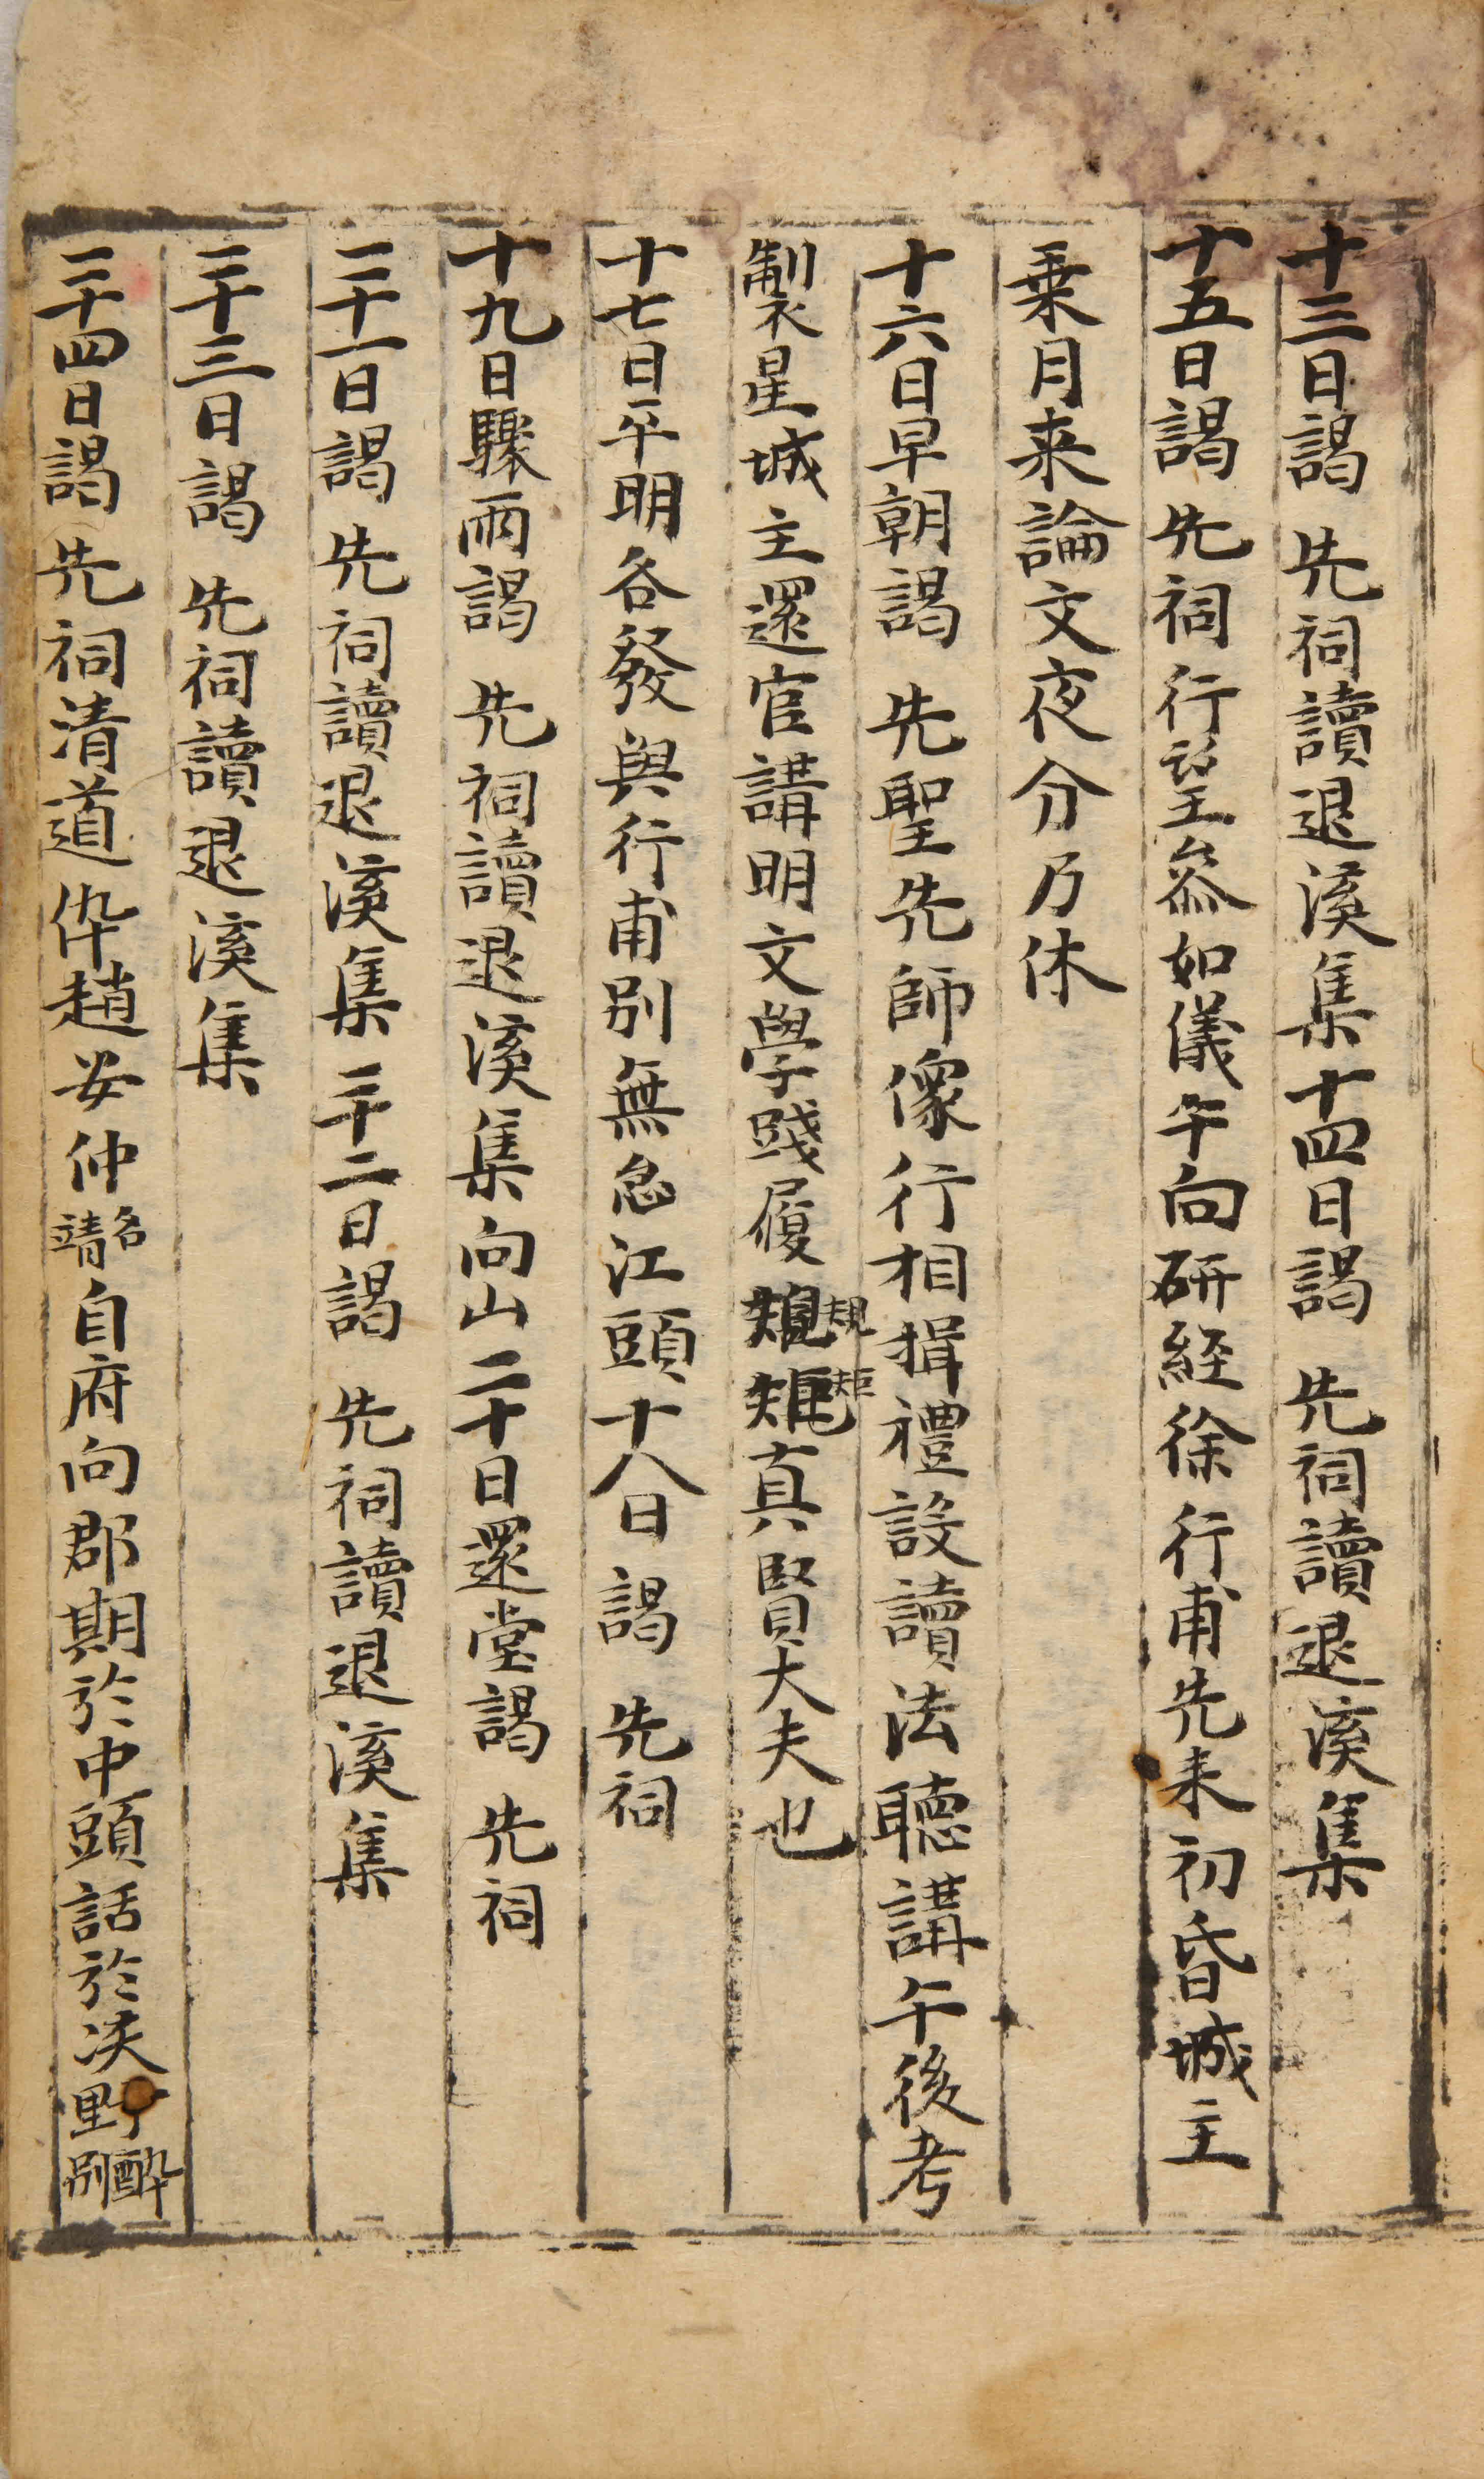 十三日謁 先祠讀退溪集十四日謁 先祠讀退溪集
十五日謁 先祠行望參如儀午向硏経徐行甫先来初昏城主
乗月来論文夜分乃休
十六日早朝謁 先聖先師像行相揖禮設讀法聽講午後考
製星城主還官講明文學踐履規矩真賢大夫也
十七日平明各發與行甫別無怠江頭十八日謁 先祠
十九日驟雨謁 先祠讀退溪集向山二十日還堂謁 先祠
二十一日謁 先祠讀退溪集二十二日謁 先祠讀退溪集
二十三日謁 先祠讀退溪集
二十四日謁 先祠清道倅趙安仲名靖自府向郡期於中頭話於浹野醉別